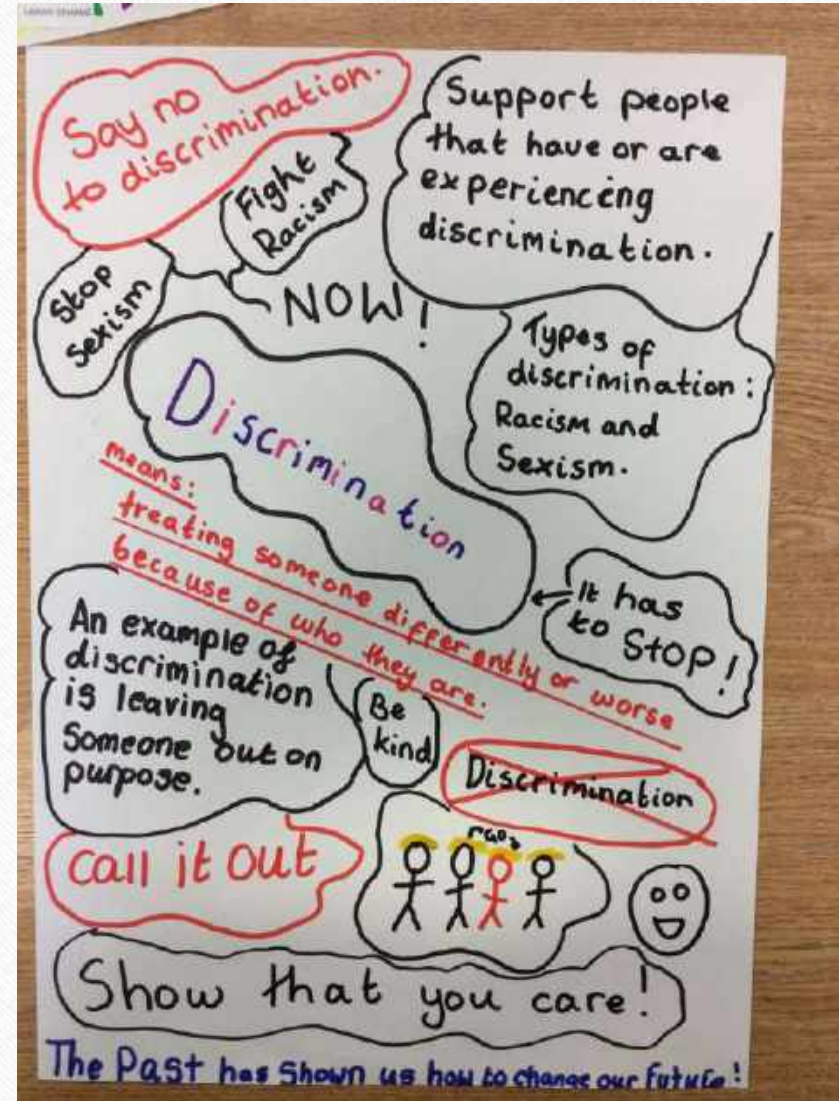 Say no
to discrimination.
Support people
that have or are
experiencing
discrimination.
Fight
Racism
Stop
Sexism
NOW!
Types of
discrimination:
Racism and
Sexism.
Discrimination
means:
treating someone differently or worse
because of who they are.
It has
to STOP!
An example of
discrimination
is leaving
Someone out on
purpose.
Be
kind
Discrimination
call it out
Show that you care!
The Past has Shown us how to change our future!